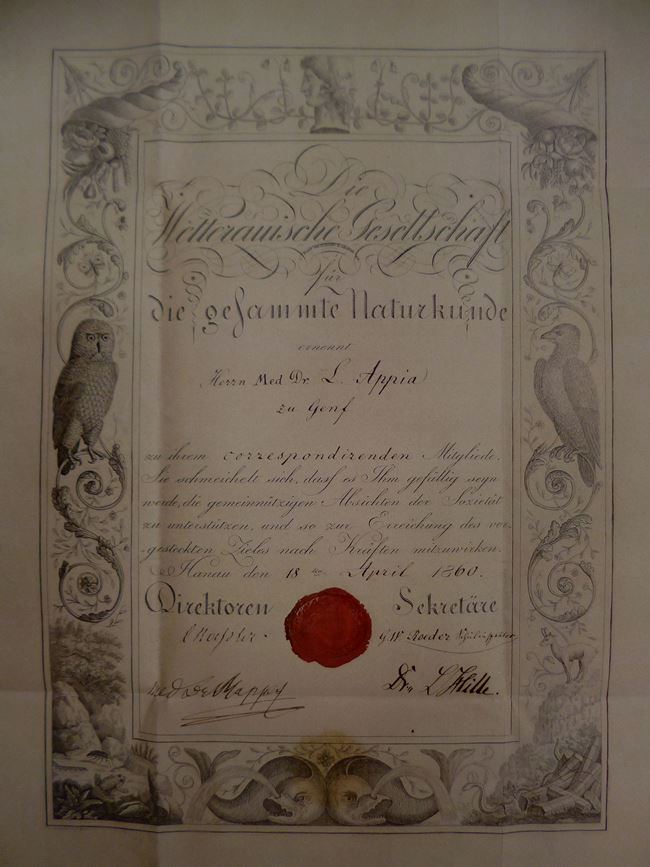 Die
Wetterauische Gesellschaft
für
die gesammte Naturkunde
ernennt
Herrn Med Dr. L. Appia
zu Genf
zu ihrem correspondirenden Mitgliede.
Sie schmeichelt sich, dass es Ihm gefällig seyn
werde, die gemeinnützigen Absichten der Sozietät
zu unterstützen, und so zur Erreichung des vor-
gesteckten Zieles nach Kräften mitzuwirken.
Hanau den 18 ten April 1860.
Direktoren Sekretäre
C Roessler. G W Roeder Schulinspector
Med Dr.
Dr. L Hille.